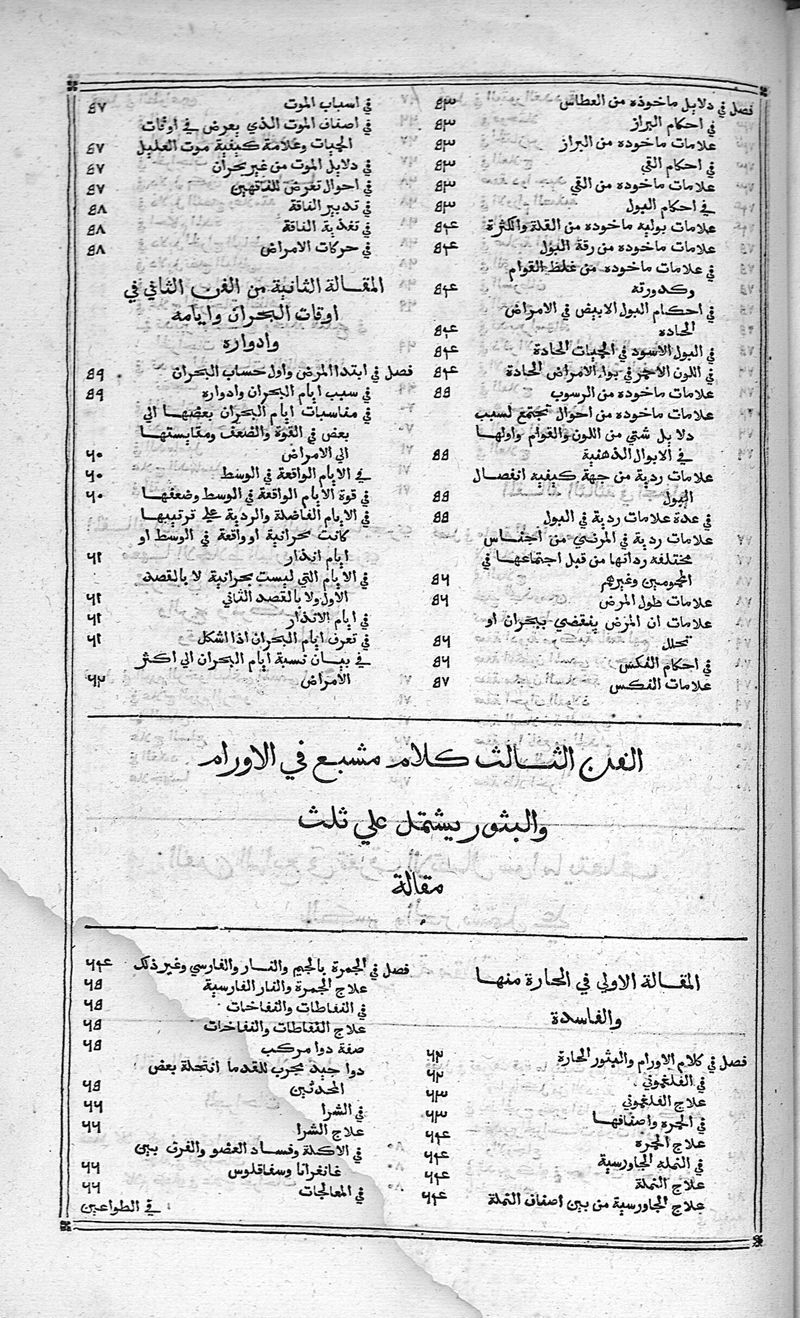 فصل في دلايل ماخوذه من العطاس ٥٣
في احكام البراز ٥٣
علامات ماخوده من البراز ٥٣
في احكام القي ٥٣
علامات ماخوده من القي ٥٣
في احكام البول ٥٣
علامات بوليه ماخوده من القلة والكثرة ٥٤
علامات ماخوده من رقة البول ٥٤
في علامات ماخوده من غلظ القوام
وكدورته ٥٤
في احكام البول الابيض في الامراض
الحاده ٥٤
في البول الاسود في الحميات الحادة ٥٤
في اللون الاحمر في بول الامراض الحادة ٥٤
علامات ماخوده من الرسوب ٥٥
علامات ماخوده من احوال تجتمع لسبب
دلايل شتي من اللون والقوام واولها
في الابوال الدهنية ٥٥
علامات ردية من جهة كيفيه انفصال
البول ٥٥
في عدة علامات ردية في البول ٥٥
علامات ردية في المرضي من اجناس
مختلفه ردانها من قبل اجتماعها في
المحمومين وغيرهم ٥٦
علامات طول المرض ٥٦
علامات ان المرض ينقضي ببحران او
تحلل ٥٦
في احكام النكس ٥٦
علامات النكس ٥٧
في اسباب الموت ٥٧
في اصناف الموت الذي يعرض في اوقات
الحميات وعلامة كيفية موت العليل ٥٧
في دلايل الموت من غير بحران ٥٧
في احوال تعرض للناقهين ٥٧
في تدبير الناقة ٥٨
في تغذية الناقة ٥٨
في حركات الامراض ٥٨
المقالة الثانية من الفن الثاني في
اوقات البحران وايامه
وادواره
فصل في ابتدا المرض واول حساب البحران ٥٩
في سبب ايام البحران وادواره ٥٩
في مناسبات ايام البحران بعضها الي
بعض في القوة والضعف ومقايستها
الي الامراض ٦٠
في الايام الواقعة في الوسط ٦٠
في قوة الايام الواقعة في الوسط وضعفها ٦٠
في الايام الفاضلة والردية علي ترتيبها
كانت بحرانية او واقعة في الوسط او
ايام انذار ٦١
في الايام التي ليست بحرانية لا بالقصد
الاول ولا بالقصد الثاني ٦١
في ايام الانذار ٦١
في تعرف ايام البحران اذا اشكل ٦١
في بيان نسبة ايام البحران الي اكثر
الامراض ٦٢
الفن الثالث كلام مشبع في الاورام
والبثور يشتمل علي ثلث
مقالة
المقالة الاولي في الحارة منها
والفاسدة
فصل في كلام الاورام والبثور الحارة ٦٢
في الفلغموني ٦٢
علاج الفلغموني ٦٣
في الحمره واصنافها ٦٣
علاج الحمره ٦٤
في النملة الجاورسية ٦٤
علاج النملة ٦٤
علاج الجاورسية من بين اصناف النملة ٦٤
فصل في الجمرة بالجيم والنار والفارسي وغير ذلك ٦٤
علاج الجمرة والنار الفارسية ٦٥
في النفاطات والنفاخات ٦٥
علاج النفاطات والنفاخات ٦٥
صفة دوا مركب ٦٥
دوا جيد مجرب للقدما انتحلة بعض
المحدثين ٦٥
في الشرا ٦٦
علاج الشرا ٦٦
في الاكلة وفساد العضو والفرق بين
غانغرانا وسفاقلوس ٦٦
في المعالجات ٦٦
في الطواعين